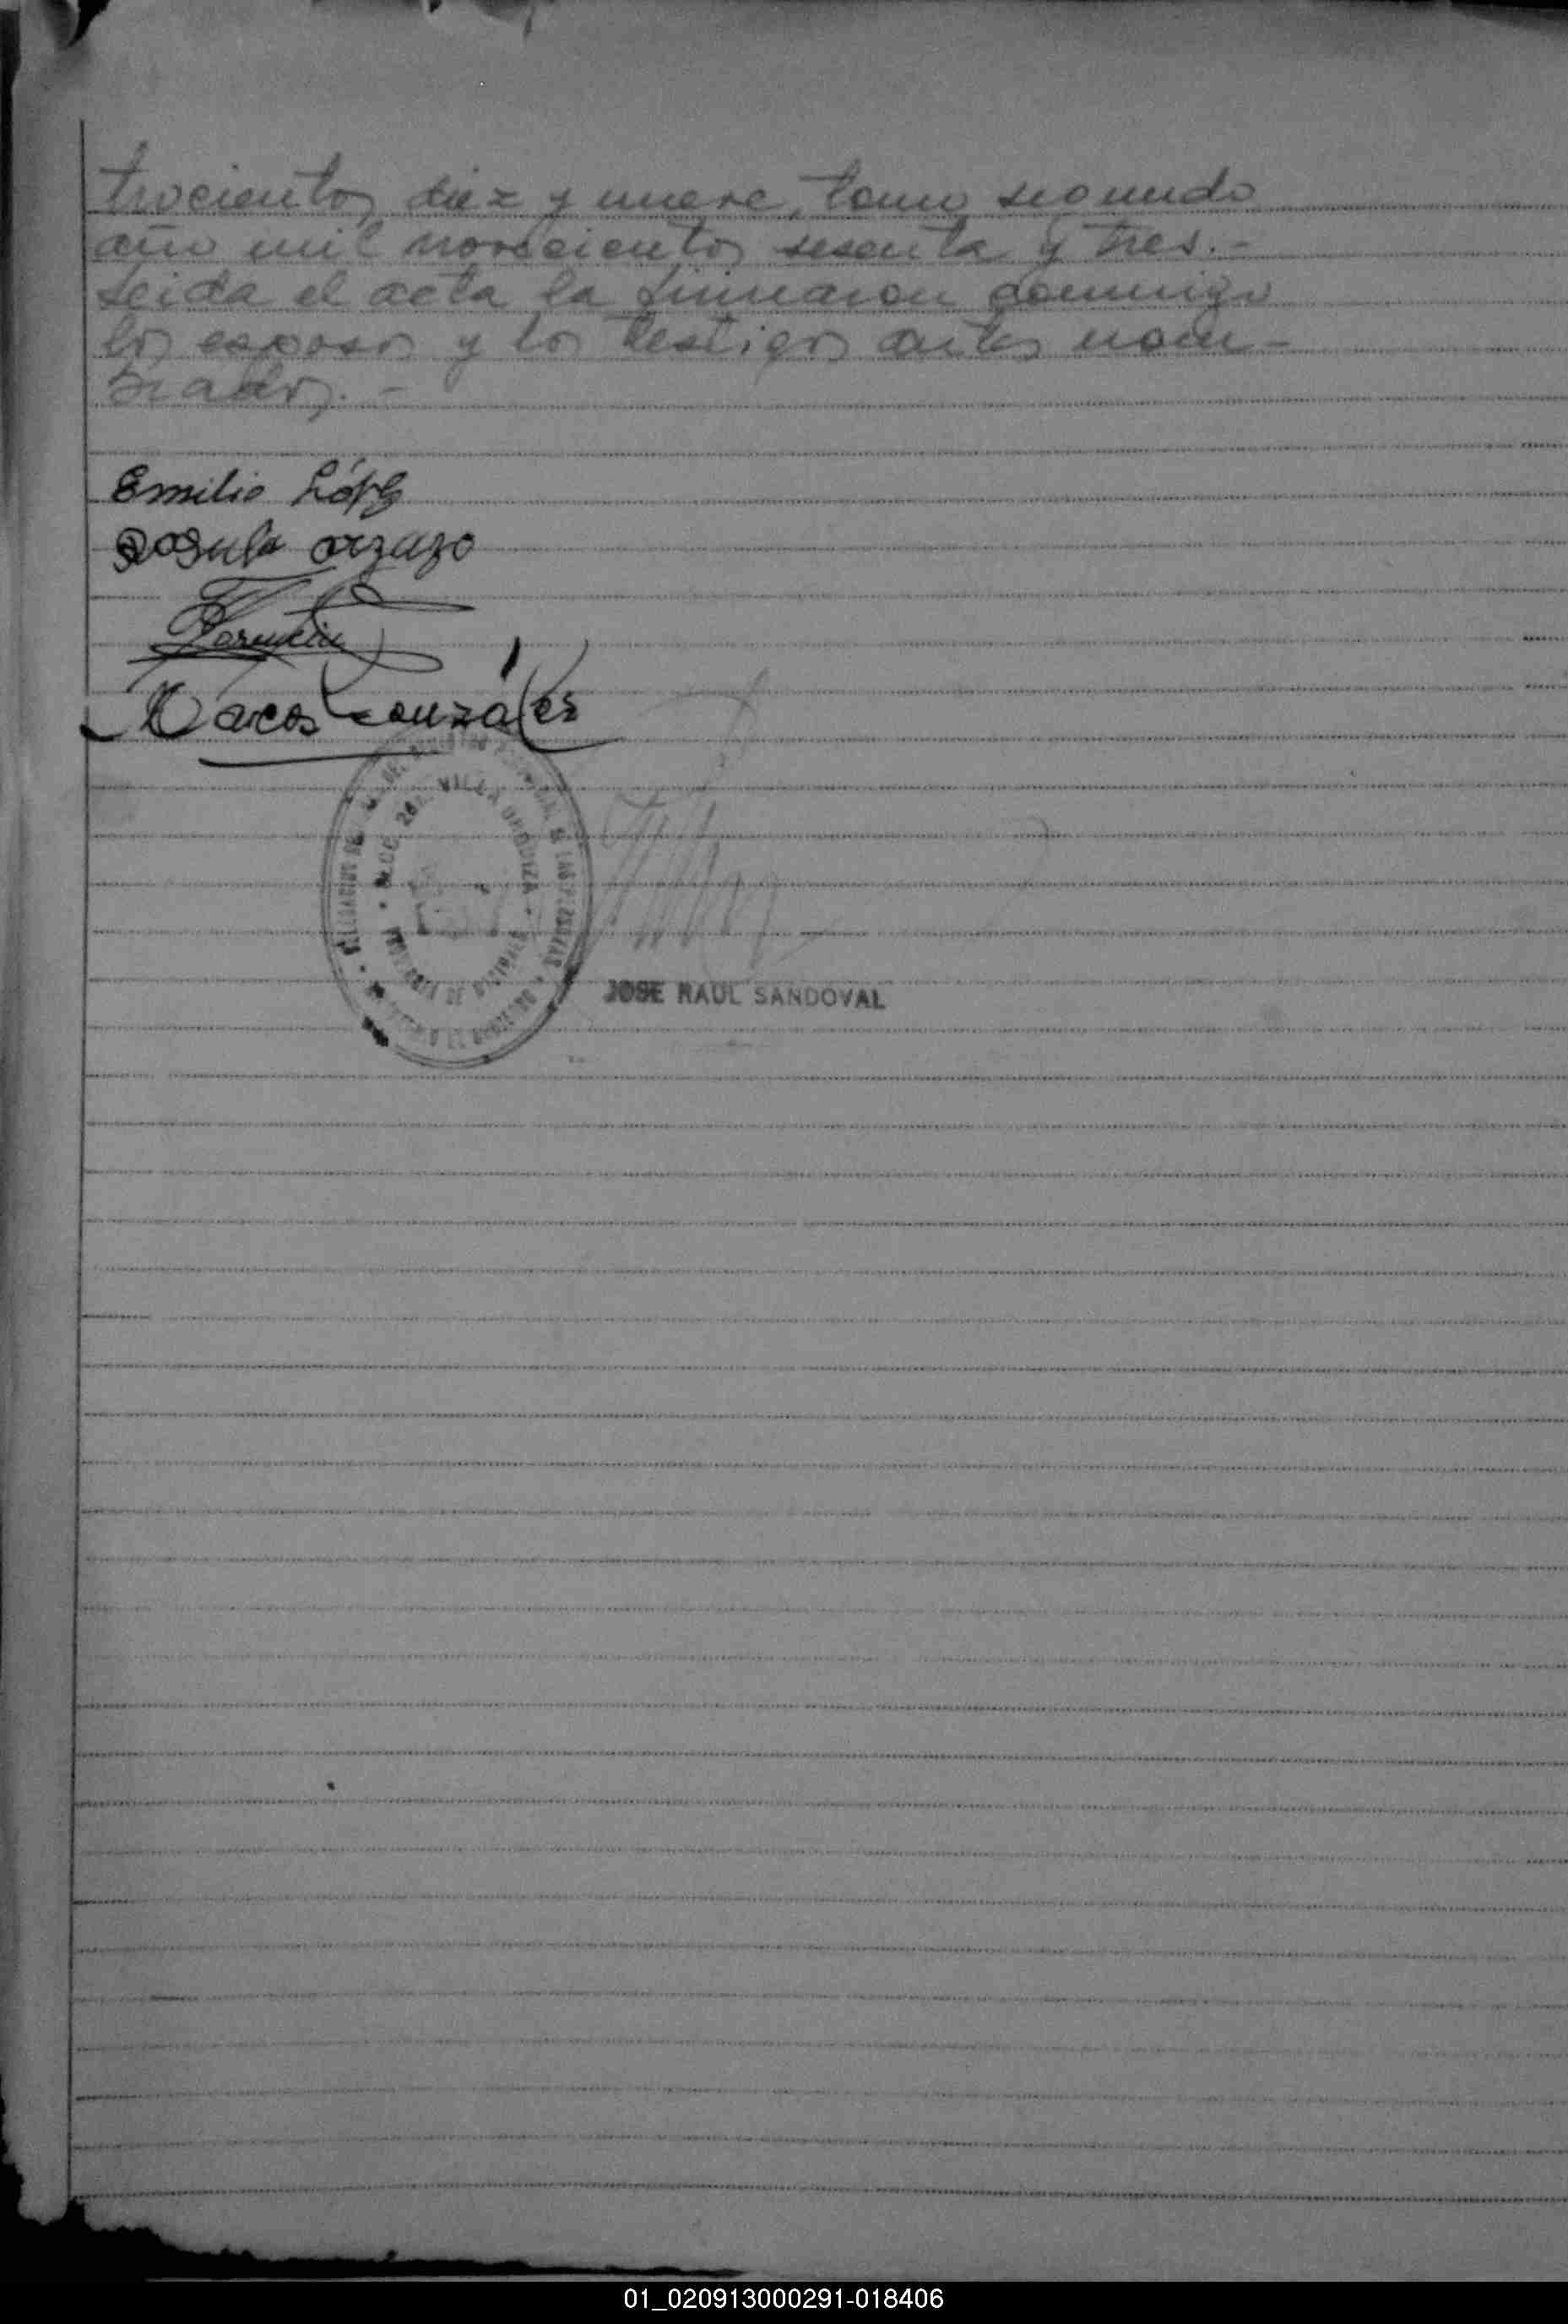 trocientos diez y nueve, tomo segundo
año mil novecientos sesenta y tres.-
Leida el acta la firmaron conmigo
los esposos y los testigos antes nom-
brados.-
Emilio López
Marcos González
SECC. 20a. VILLA URQUIZA
JOSE RAUL SANDOVAL
01_020913000291-018406